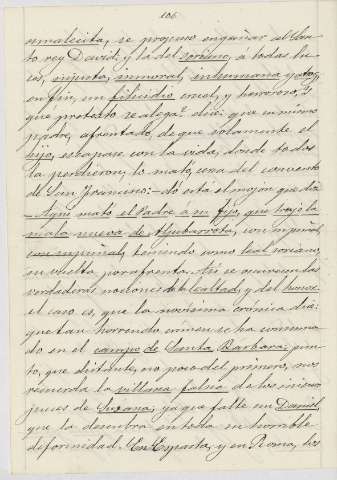 106
amalecita, se propuso engañar al San-
to rey David; y la del soriano, á todas lu-
ces, injusta, inmoral, inhumana y atroz,
en fin, un filicidio cruel, y horroroso. ¿Y
que protesto se alega? dice: que su mismo
padre, afrentado, de que solamente el
hijo, escapase con la vida, donde todos
la perdieron; lo mató, cerca del convento
de San Francisco:- dó está el mojon que dice
-Aqui mató el Padre á su fijo, que trajo la
mala nueva de Aljubarrota, con un puñal,
con un puñal, teniendo como leal soriano,
su vuelta por afrenta. Asi se oscurecen las
verdaderas nociones de la lealtad, y del honor.
el caso es, que la novisima crónica dice:
que tan horrendo crimen se ha consuma-
do en el campo de Santa Barbara; pun-
to, que distante, no poco del primero, nos
recuerda la villana falsia de los inicuos
jueces de Suzana; ya que falte un Daniel
que la descubra en toda su horrible
diformidad. En Esparta, y en Roma, los